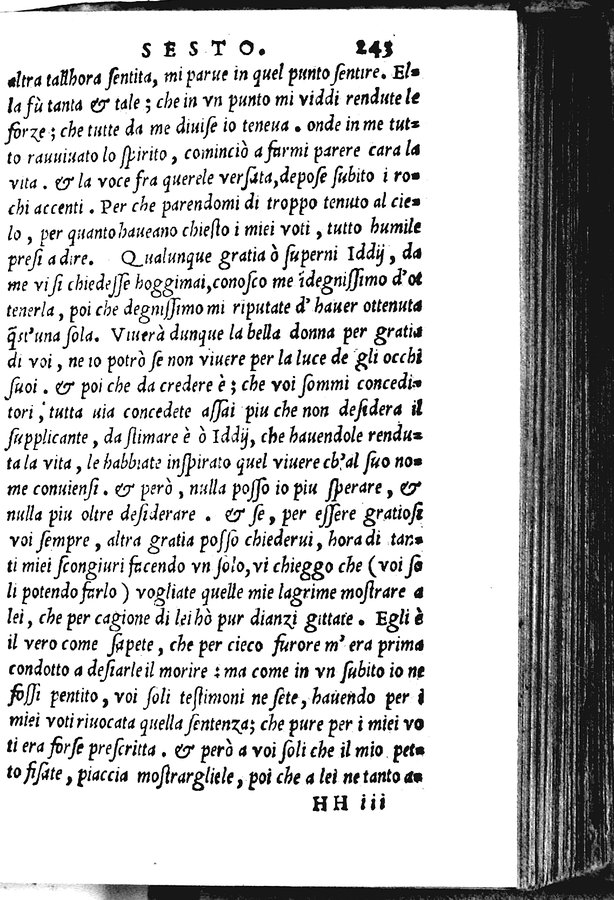 SESTO. 243
altra talhora ſentita, mi parue in quel punto ſentire. El=
la fù tanta & tale; che in vn punto mi viddi rendute le
forze; che tutte da me diuiſe io teneua. onde in me tut=
to rauuiuato lo ſpirito, cominciò a farmi parere cara la
vita. & la voce fra querele verſata, depoſe ſubito i ro=
chi accenti. Per che parendomi di troppo tenuto al cie=
lo, per quanto haueano chieſto i miei voti, tutto humile
preſi a dire. Qualunque gratia ò ſuperni Iddij, da
me vi ſi chiedeſſe hoggimai, conoſco me ĩdegniſſimo d'ot
tenerla, poi che degniſſimo mi riputate d' hauer ottenuta
q̃st'una ſola. Viuerà dunque la bella donna per gratia
di voi, ne io potrò ſe non viuere per la luce de gli occhi
ſuoi. & poi che da credere è; che voi ſommi concedi=
tori, tutta uia concedete aſſai piu che non deſidera il
ſupplicante, da ſtimare è ò Iddij, che hauendole rendu=
ta la vita, le habbiate inſpirato quel viuere ch'al ſuo no=
me conuienſi. & però, nulla poſſo io piu ſperare, &
nulla piu oltre deſiderare. & ſe, per eſſere gratioſi
voi ſempre, altra gratia poſſo chiederui, hora di tan=
ti miei ſcongiuri facendo vn ſolo, vi chieggo che (voi ſo
li potendo farlo) vogliate quelle mie lagrime moſtrare a
lei, che per cagione di lei hò pur dianzi gittate. Egli è
il vero come ſapete, che per cieco furore m' era prima
condotto a deſiarle il morire: ma come in vn ſubito io ne
foſſi pentito, voi ſoli teſtimoni ne ſete, hauendo per i
miei voti riuocata quella ſentenza; che pure per i miei vo
ti era forſe preſcritta. & però a voi ſoli che il mio pet=
to fiſate, piaccia moſtrargliele, poi che a lei ne tanto an=
HH iii